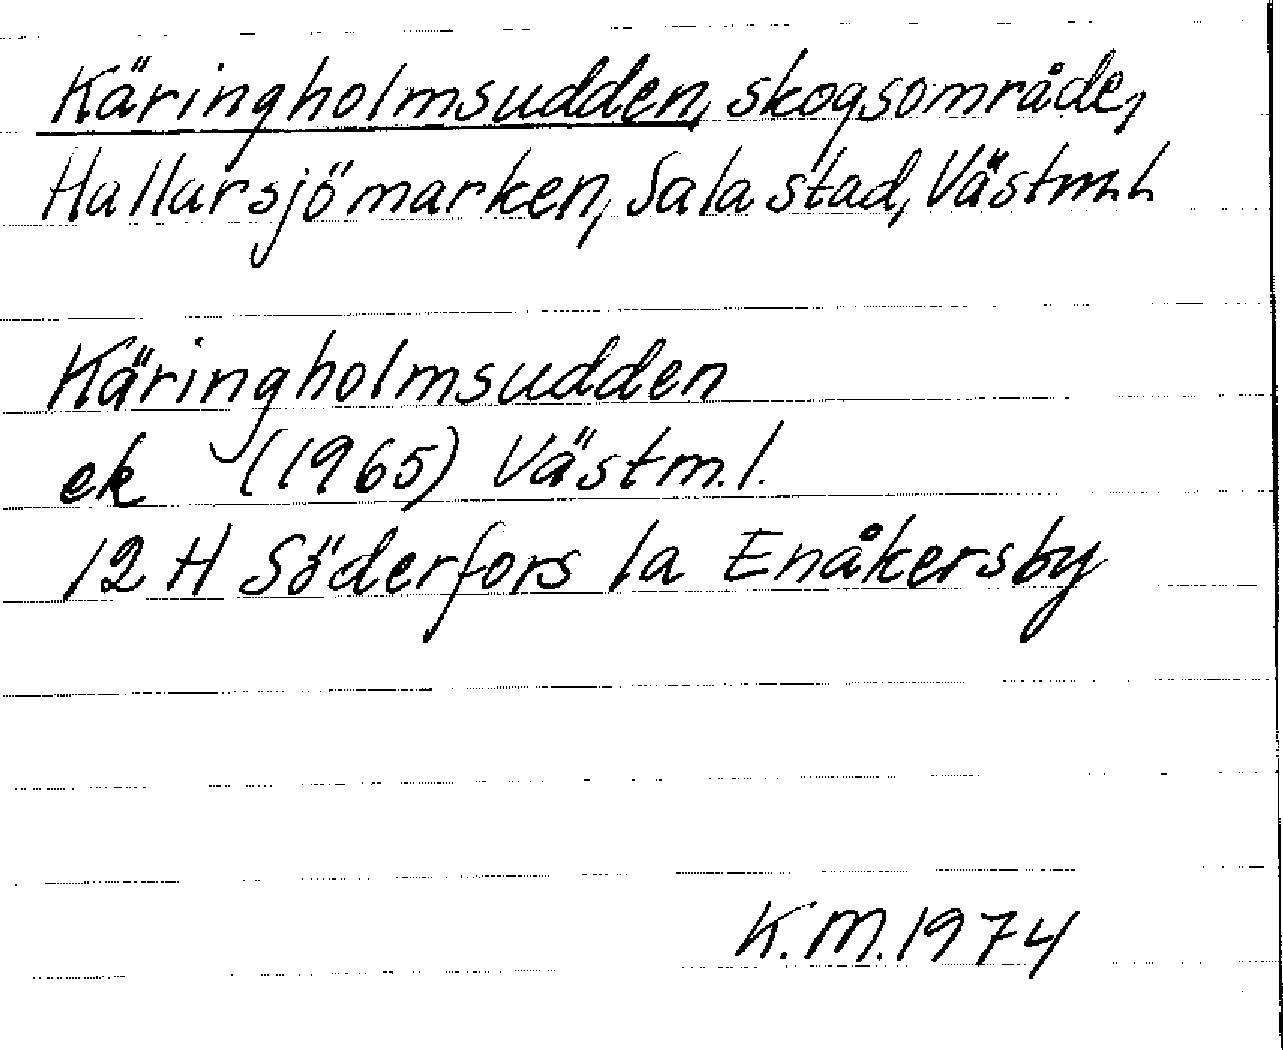 Käringholmsudden, skogsområde,
Hallarsjömarken, Sala stad, Västm.l.
Käringholmsudden
ek (1965) Västm.l.
12 H Söderfors 1a Enåkersby
K.M. 1974